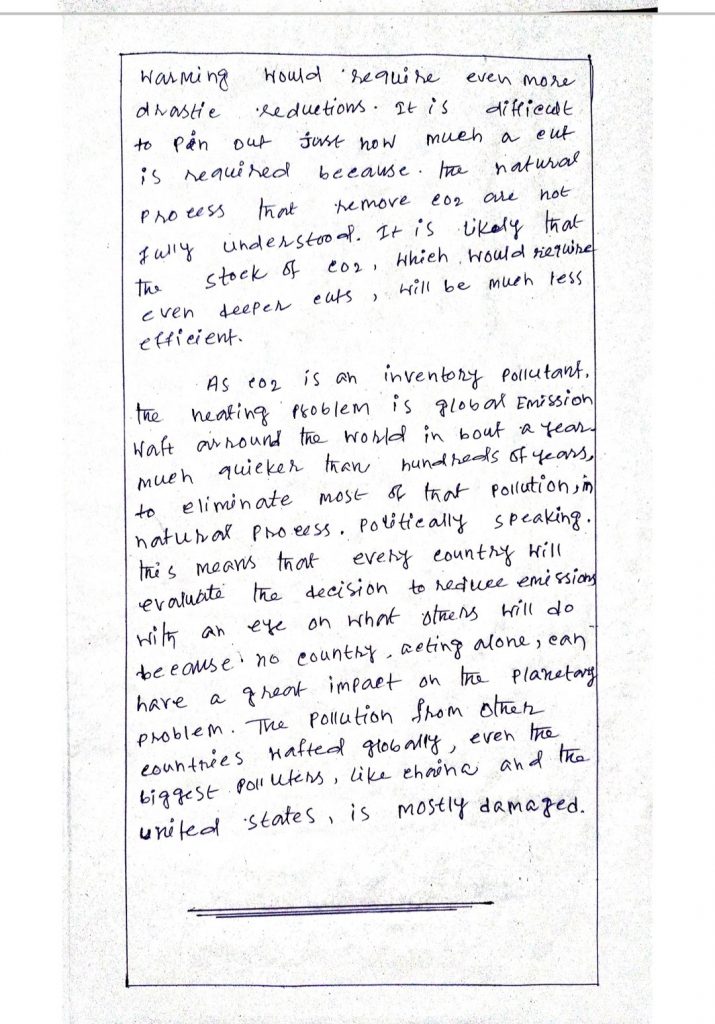 Warming would require even more
drastic reductions. It is difficult
to pin out just how much a cut
is required because. the natural
process that remove co2 are not
fully understood. It is likely that
the stock of co2, which would require
even deeper cuts, will be much less
efficient.
As co2 is an inventory pollutant.
the heating problem is global Emission
Waft arround the world in bout a year
much quicker than hundreds of years,
to eliminate most of that pollution, in
natural process. politically speaking.
this means that every country will
evaluate the decision to reduce emissions
with an eye on what others will do
because no country, acting alone, can
have a great impact on the planetary
problem. The pollution from other
countries wafted globally, even the
biggest polluters, like chaina and the
united states, is mostly damaged.